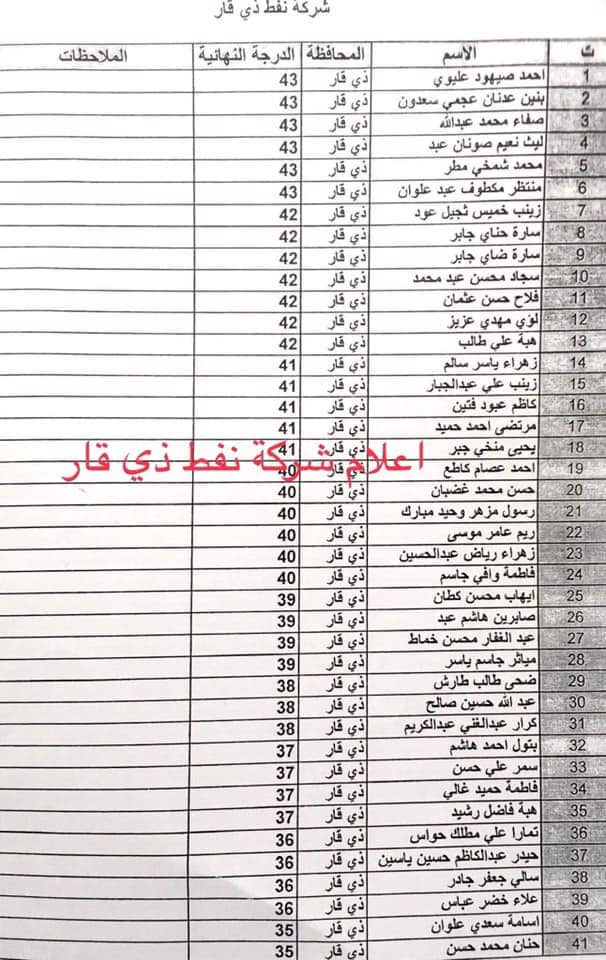 شركة نفط ذي قار
ت الاسم المحافظة الدرجة النهائية الملاحظات
1 احمد صيهود عليوي ذي قار 43
2 بنين عدنان عجمي سعدون ذي قار 43
3 صفاء محمد عبدالله ذي قار 43
4 ليث نعيم صونان عبد ذي قار 43
5 محمد شمخي مطر ذي قار 43
6 منتظر مكطوف عبد علوان ذي قار 43
7 زينب خميس ثجيل عود ذي قار 42
8 سارة حناي جابر ذي قار 42
9 سارة ضاي جابر ذي قار 42
10 سجاد محسن عبد محمد ذي قار 42
11 فلاح حسن عثمان ذي قار 42
12 لؤي مهدي عزيز ذي قار 42
13 هبة علي طالب ذي قار 42
14 زهراء ياسر سالم ذي قار 41
15 زينب علي عبدالجبار ذي قار 41
16 كاظم عبود فتين ذي قار 41
17 مرتضى احمد حميد ذي قار 41
18 يحيى منخي جبر ذي قار 41
اعلام شركة نفط ذي قار
19 احمد عصام كاطع ذي قار 40
20 حسن محمد غضبان ذي قار 40
21 رسول مزهر وحيد مبارك ذي قار 40
22 ريم عامر موسى ذي قار 40
23 زهراء رياض عبدالحسين ذي قار 40
24 فاطمة وافي جاسم ذي قار 40
25 ايهاب محسن كطان ذي قار 39
26 صابرين هاشم عبد ذي قار 39
27 عبد الغفار محسن خماط ذي قار 39
28 مياثر جاسم ياسر ذي قار 39
29 ضحى طالب طارش ذي قار 38
30 عبد الله حسين صالح ذي قار 38
31 كرار عبدالغني عبدالكريم ذي قار 38
32 بتول احمد هاشم ذي قار 37
33 سمر علي حسن ذي قار 37
34 فاطمة حميد غالي ذي قار 37
35 هبة فاضل رشيد ذي قار 37
36 تمارا علي مطلك حواس ذي قار 36
37 حيدر عبدالكاظم حسين ياسين ذي قار 36
38 سالي جعفر جادر ذي قار 36
39 علاء خضر عباس ذي قار 36
40 اسامة سعدي علوان ذي قار 35
41 حنان محمد حسن ذي قار 35